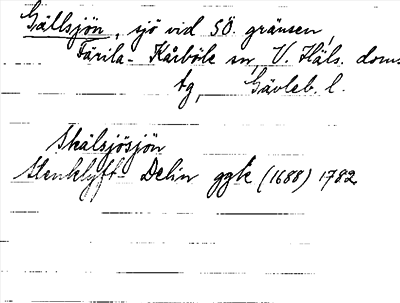 Gällsjön, sjö vid SÖ. gränsen,
Färila-Kårböle sn, V. Häls. doms.
tg, Gävleb. l.
Skälsjösjön
Stenklyft Delin ggk (1688) 1782